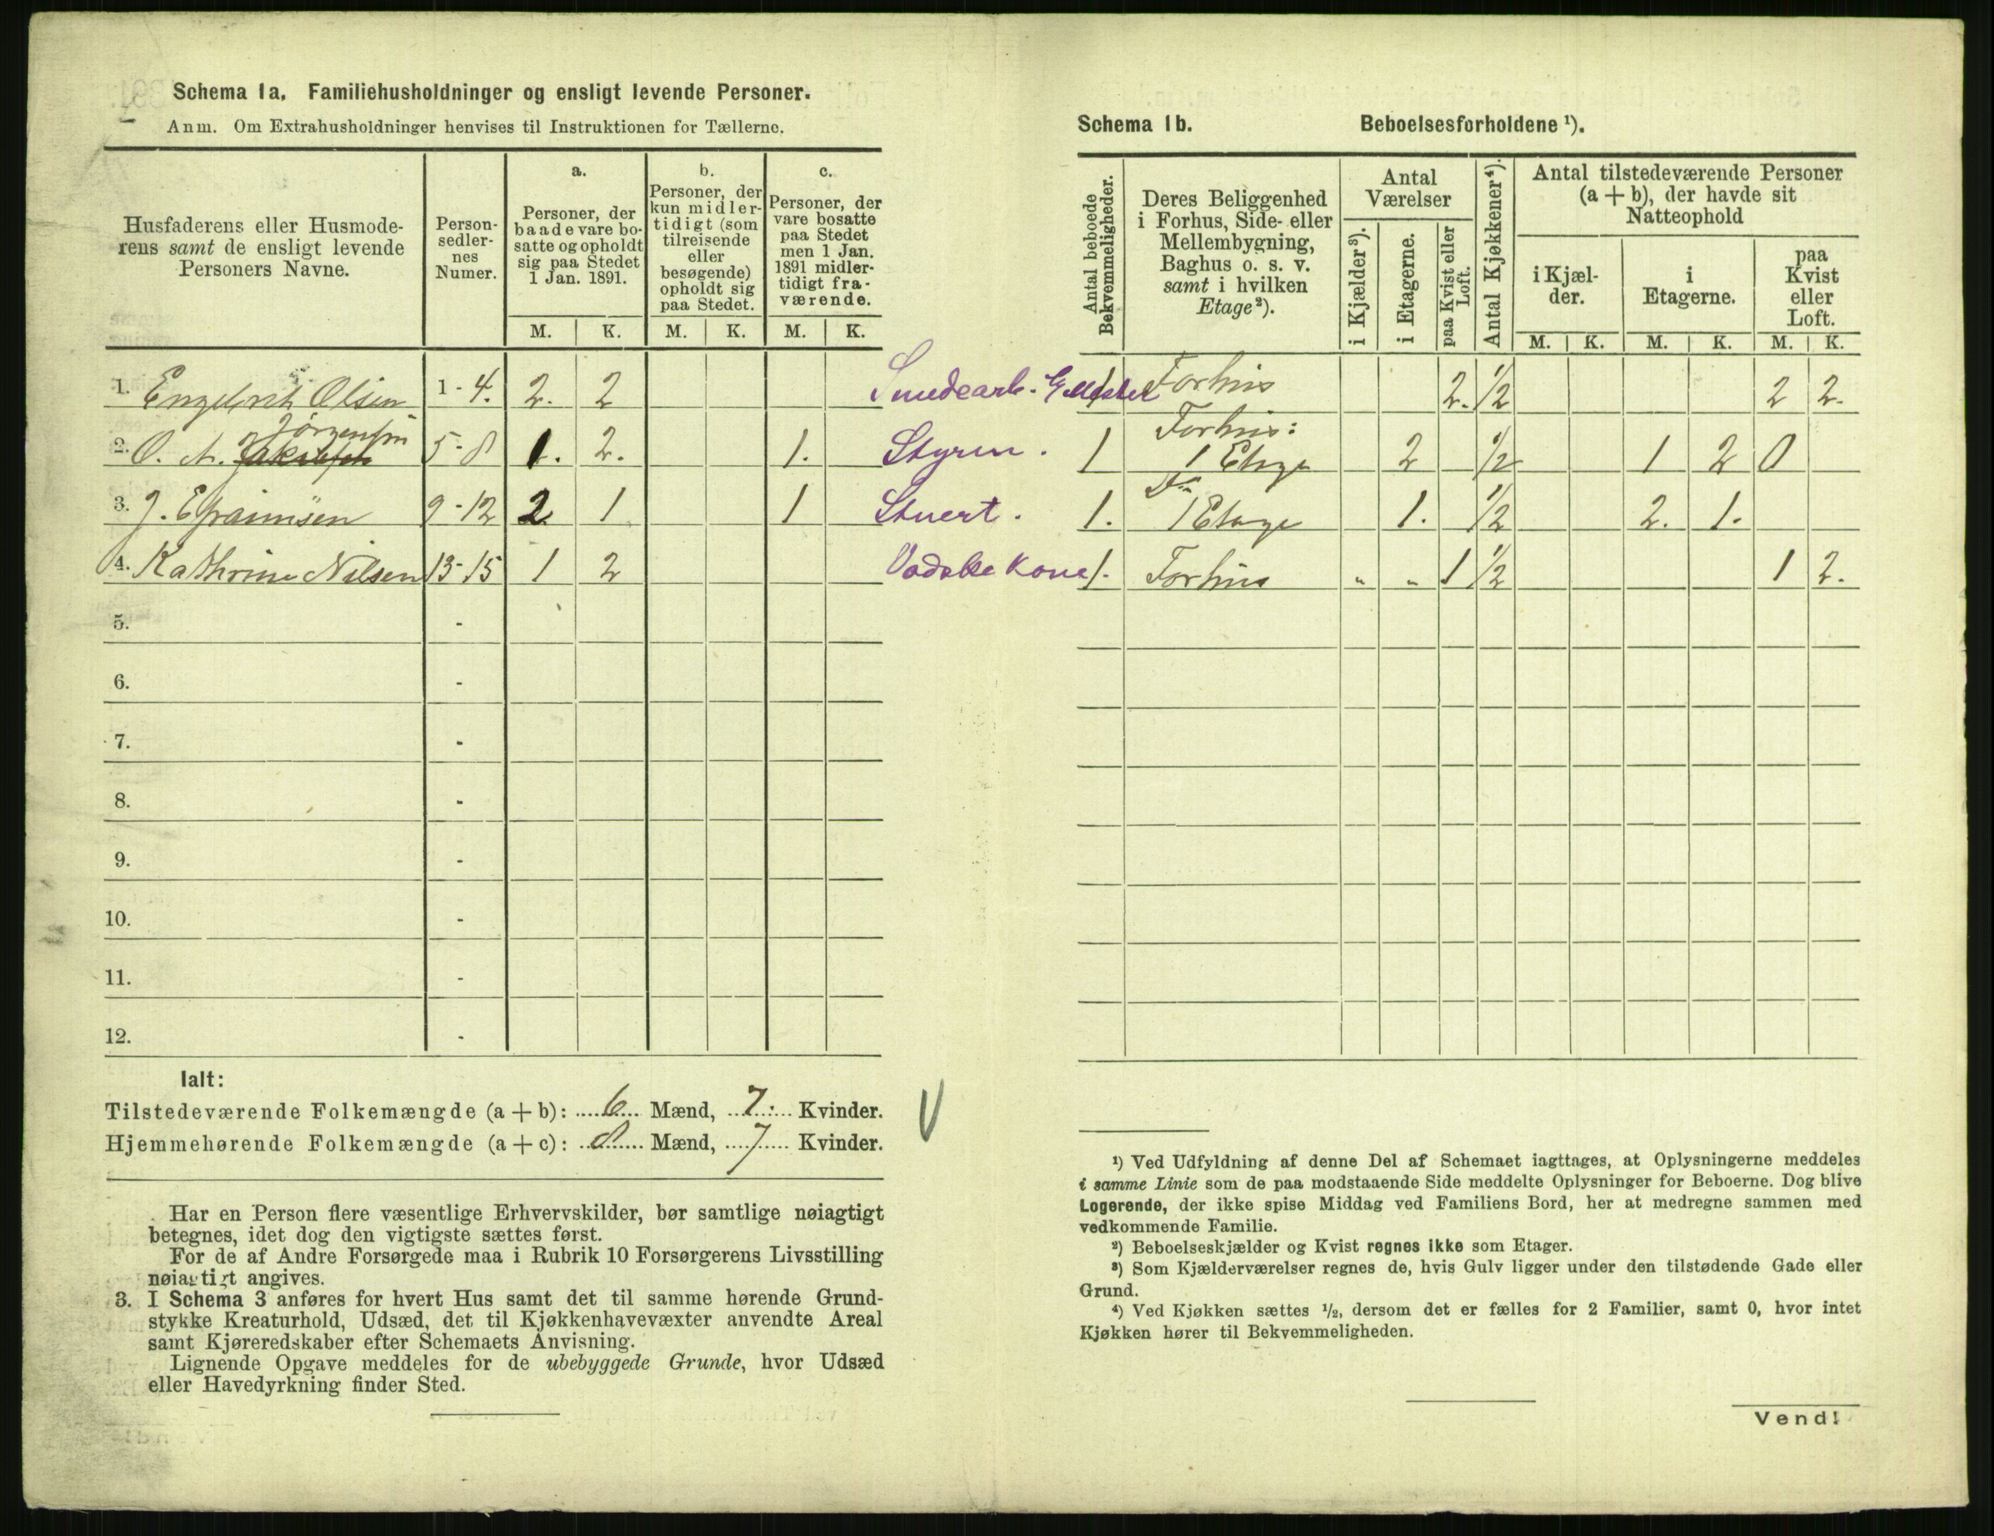 Schema 1a. Familiehusholdninger og ensligt levende Personer.
Anm. Om Extrahusholdninger henvises til Instruktionen for Tællerne.
Husfaderens eller Husmoderens samt de ensligt levende Personers Navne.
Personsedlernes Numer.
a.
Personer, der baade vare bosatte og opholdt sig paa Stedet 1 Jan. 1891.
b.
Personer, der kun midlertidigt (som tilreisende eller besøgende) opholdt sig paa Stedet.
c.
Personer, der vare bosatte paa Stedet men 1 Jan. 1891 midlertidigt fraværende.
M. K. M. K. M. K.
1. Engebrit Olsen 1-4. 2. 2 Smedearb.
Jörgensen
2. O. A. Jakobsen 5-8 1. 2. 1. Styrm.
3. J. Efraimsen 9-12 2 1 1 Stuert.
4. Kathrine Nilsen 13-15 1 2 Vadske Kone
5. -
6. -
7. -
8. -
9. -
10. -
11. -
12. -
Ialt:
Tilstedeværende Folkemængde (a+b): 6 Mænd, 7. Kvinder.
Hjemmehørende Folkemængde (a+c): 8 Mænd, 7 Kvinder.
Har en Person flere væsentlige Erhvervskilder, bør samtlige nøiagtigt
betegnes, idet dog den vigtigste sættes først.
For de af Andre Forsørgede maa i Rubrik 10 Forsørgerens Livsstilling
nøiagtigt angives.
3. I Schema 3 anføres for hvert Hus samt det til samme hørende Grund-
stykke Kreaturhold, Udsæd, det til Kjøkkenhavevæxter anvendte Areal
samt Kjøreredskaber efter Schemaets Anvisning.
Lignende Opgave meddeles for de ubebyggede Grunde, hvor Udsæd
eller Havedyrkning finder Sted.
Schema 1b. Beboelsesforholdene ¹).
Antal beboede Bekvemmeligheder.
Deres Beliggenhed i Forhus, Side- eller Mellembygning, Baghus o. s. v. samt i hvilken Etage²).
Antal Værelser
i Kjælder³).
i Etagerne.
paa Kvist eller Loft.
Antal Kjøkkener⁴).
Antal tilstedeværende Personer (a+b), der havde sit Natteophold
i Kjælder.
i Etagerne.
paa Kvist eller Loft.
M. K. M. K. M. K.
1 Forhus 2. 1/2 2 2.
Forhus:
1 1 Etage 2 1/2 1 2 0
1. 1 Etage 1. 1/2 2. 1.
1. Forhus " " 1 1/2 1 2.
¹) Ved Udfyldning af denne Del af Schemaet iagttages, at Oplysningerne meddeles
i samme Linie som de paa modstaaende Side meddelte Oplysninger for Beboerne. Dog blive
Logerende, der ikke spise Middag ved Familiens Bord, her at medregne sammen med
vedkommende Familie.
²) Beboelseskjælder og Kvist regnes ikke som Etager.
³) Som Kjælderværelser regnes de, hvis Gulv ligger under den tilstødende Gade eller
Grund.
⁴) Ved Kjøkken sættes ½, dersom det er fælles for 2 Familier, samt 0, hvor intet
Kjøkken hører til Bekvemmeligheden.
Vend!